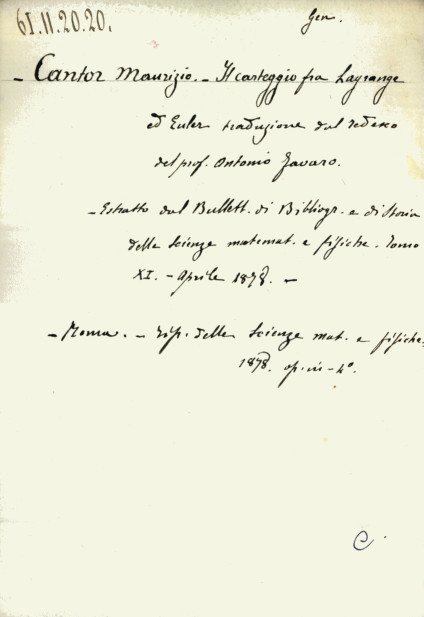 61.11.20.20.
Gen.
- Cantor Maurizio. - Il carteggio fra Lagrange
ed Euler traduzione dal tedesco
del prof. Antonio Favaro.
- Estratto dal Bullett. di Bibliogr. e di Storia
delle scienze matemat. e fisiche. Tomo
XI. - Aprile 1878. -
- Roma. - Tip. delle scienze mat. e fisiche.
1878. op. in-4°.
C.